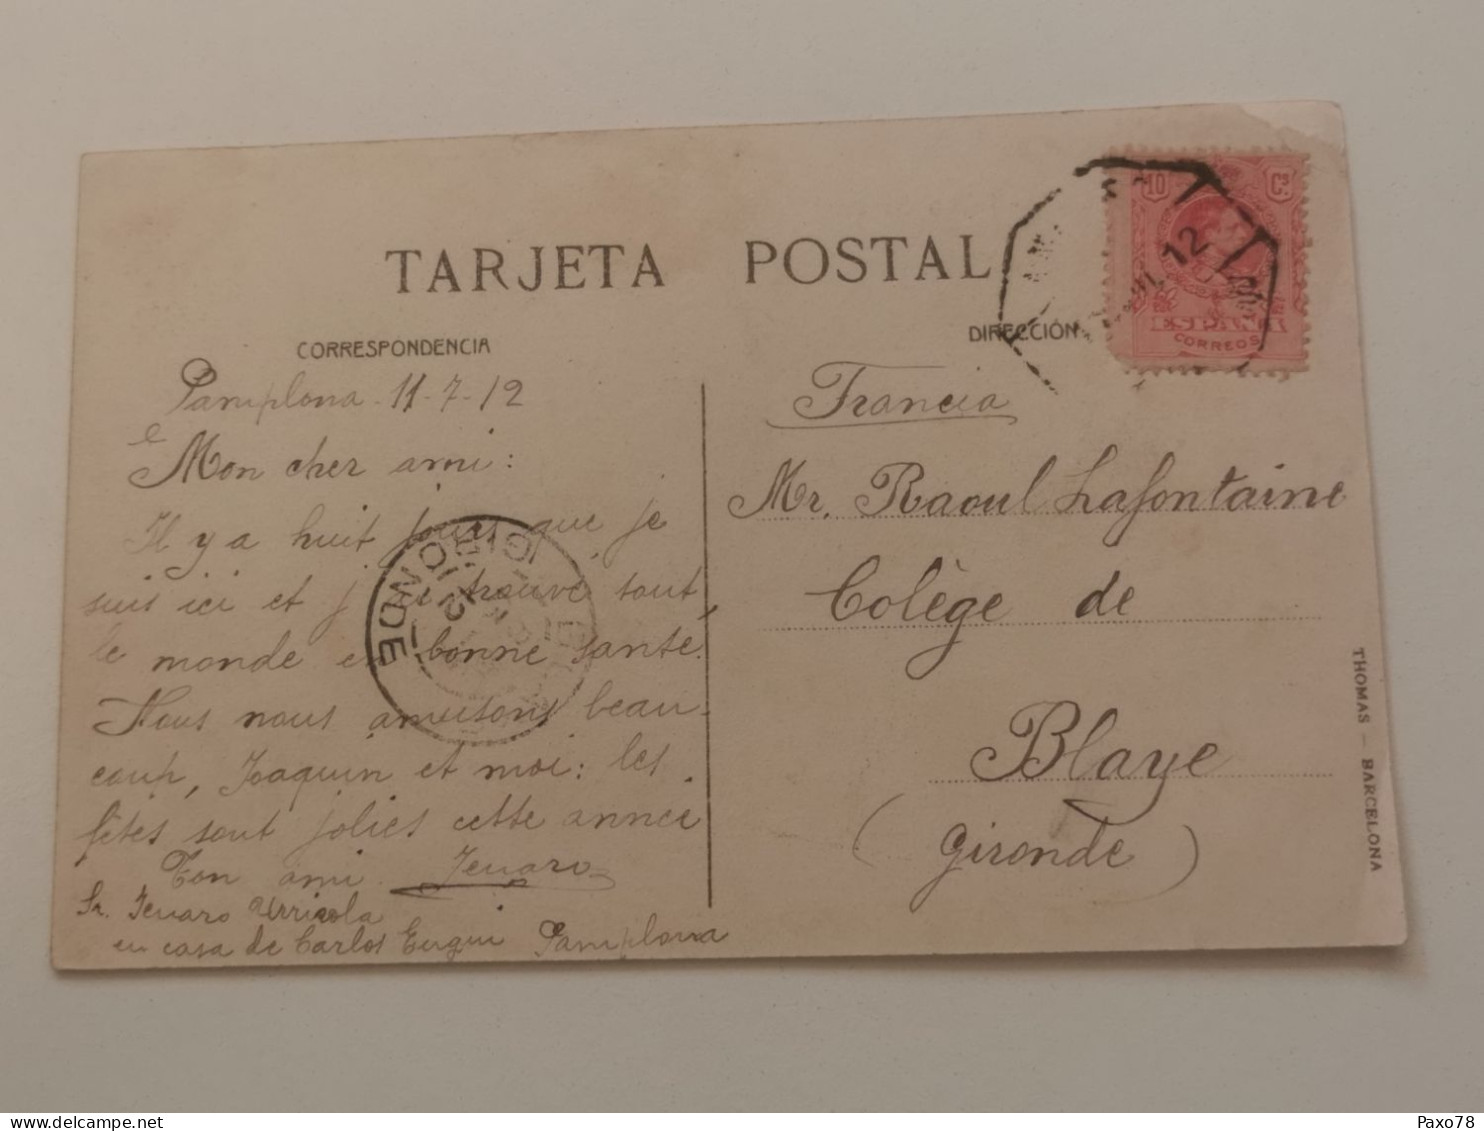 TARJETA POSTAL
CORRESPONDENCIA
DIRECCIÓN
10 Cs
12
ESPAÑA
CORREOS
Pamplona 11-7-12
Mon cher ami:
Il y a huit jours que je
suis ici et j'ai trouvé tout
le monde en bonne santé.
Nous nous amusons beau-
coup, Joaquin et moi: les
fêtes sont jolies cette année
Ton ami Jenaro
Sr. Jenaro Urricola
en casa de Carlos Eugui Pamplona
GIRONDE
12
Francia
Mr. Raoul Lafontaine
Colège de
Blaye
(Gironde)
THOMAS — BARCELONA
Paxo78